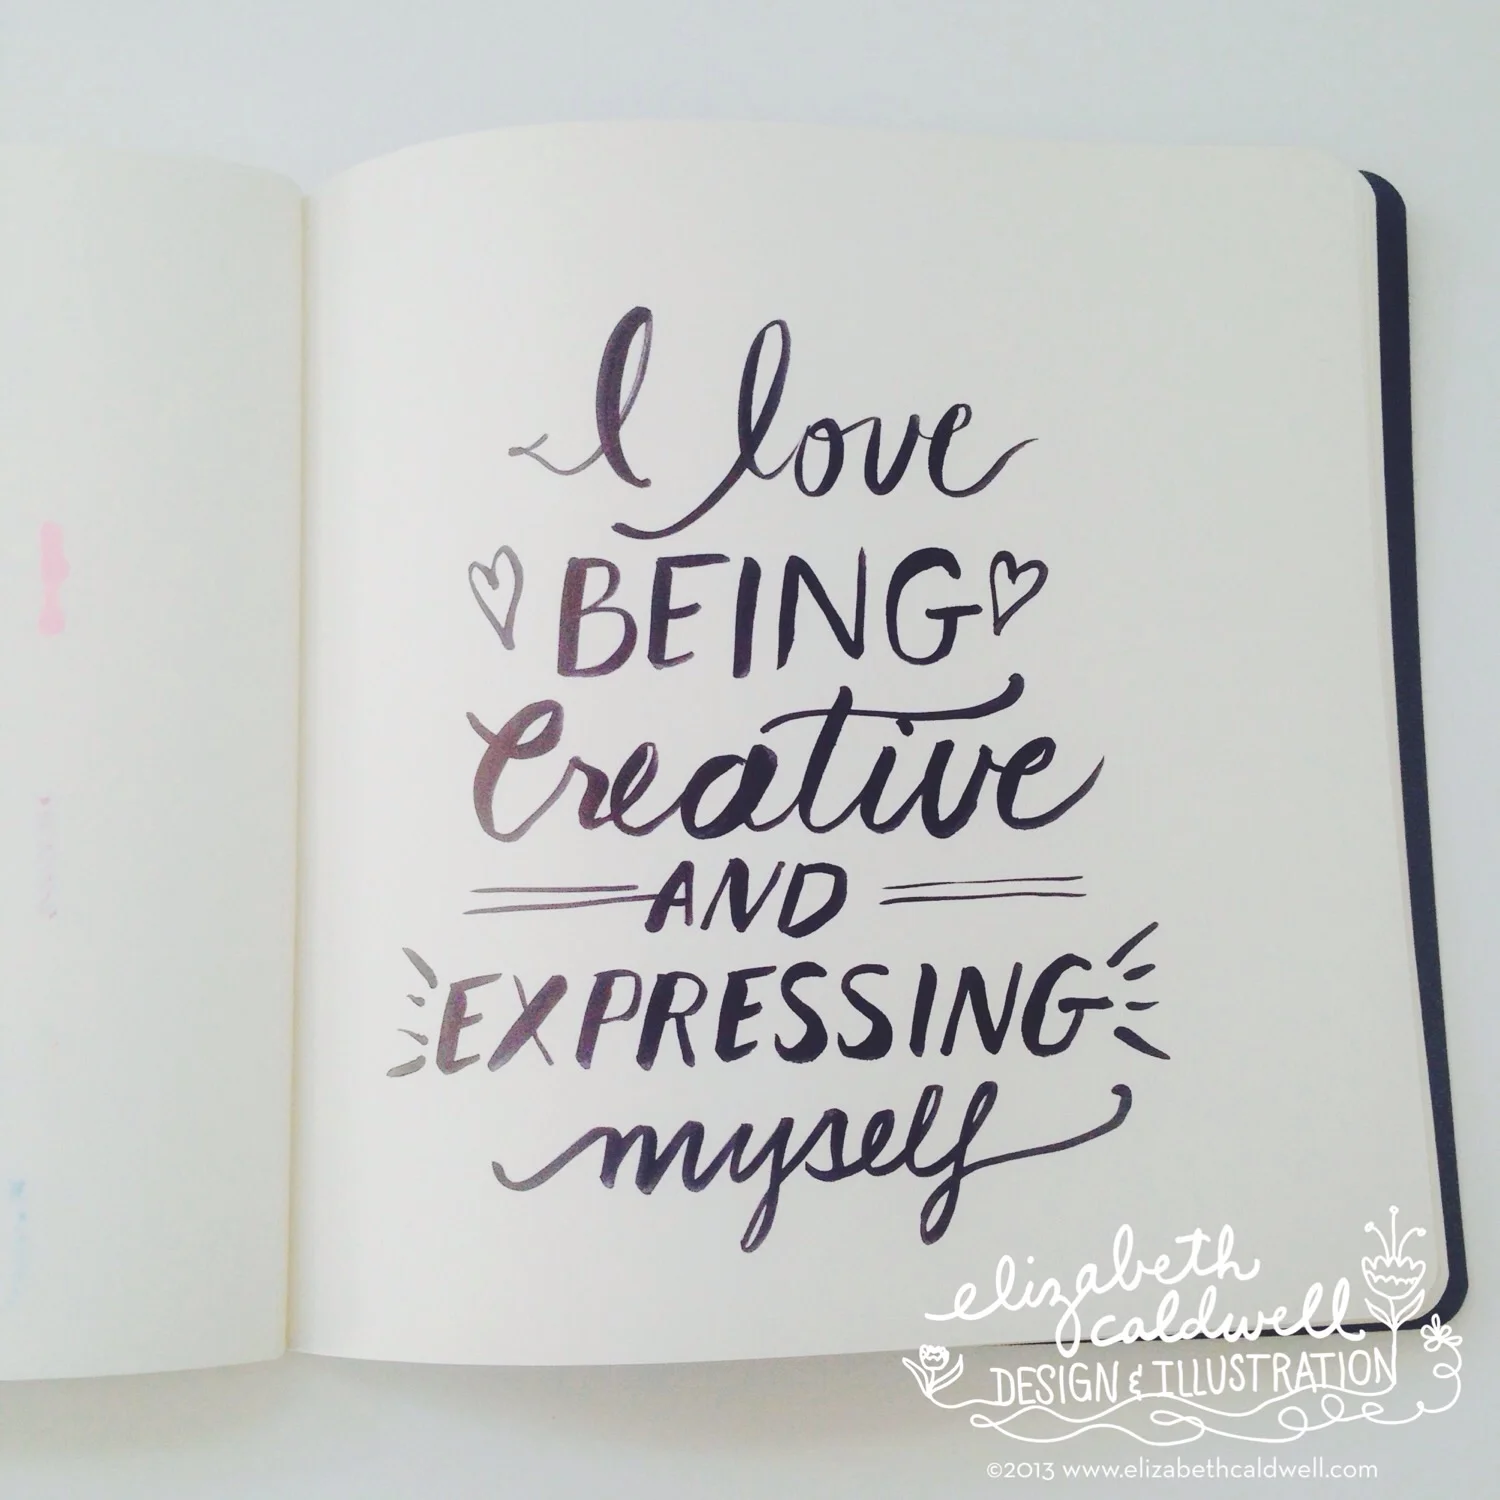 I love
BEING
Creative
AND
EXPRESSING
myself
elizabeth
caldwell
DESIGN & ILLUSTRATION
©2013 www.elizabethcaldwell.com